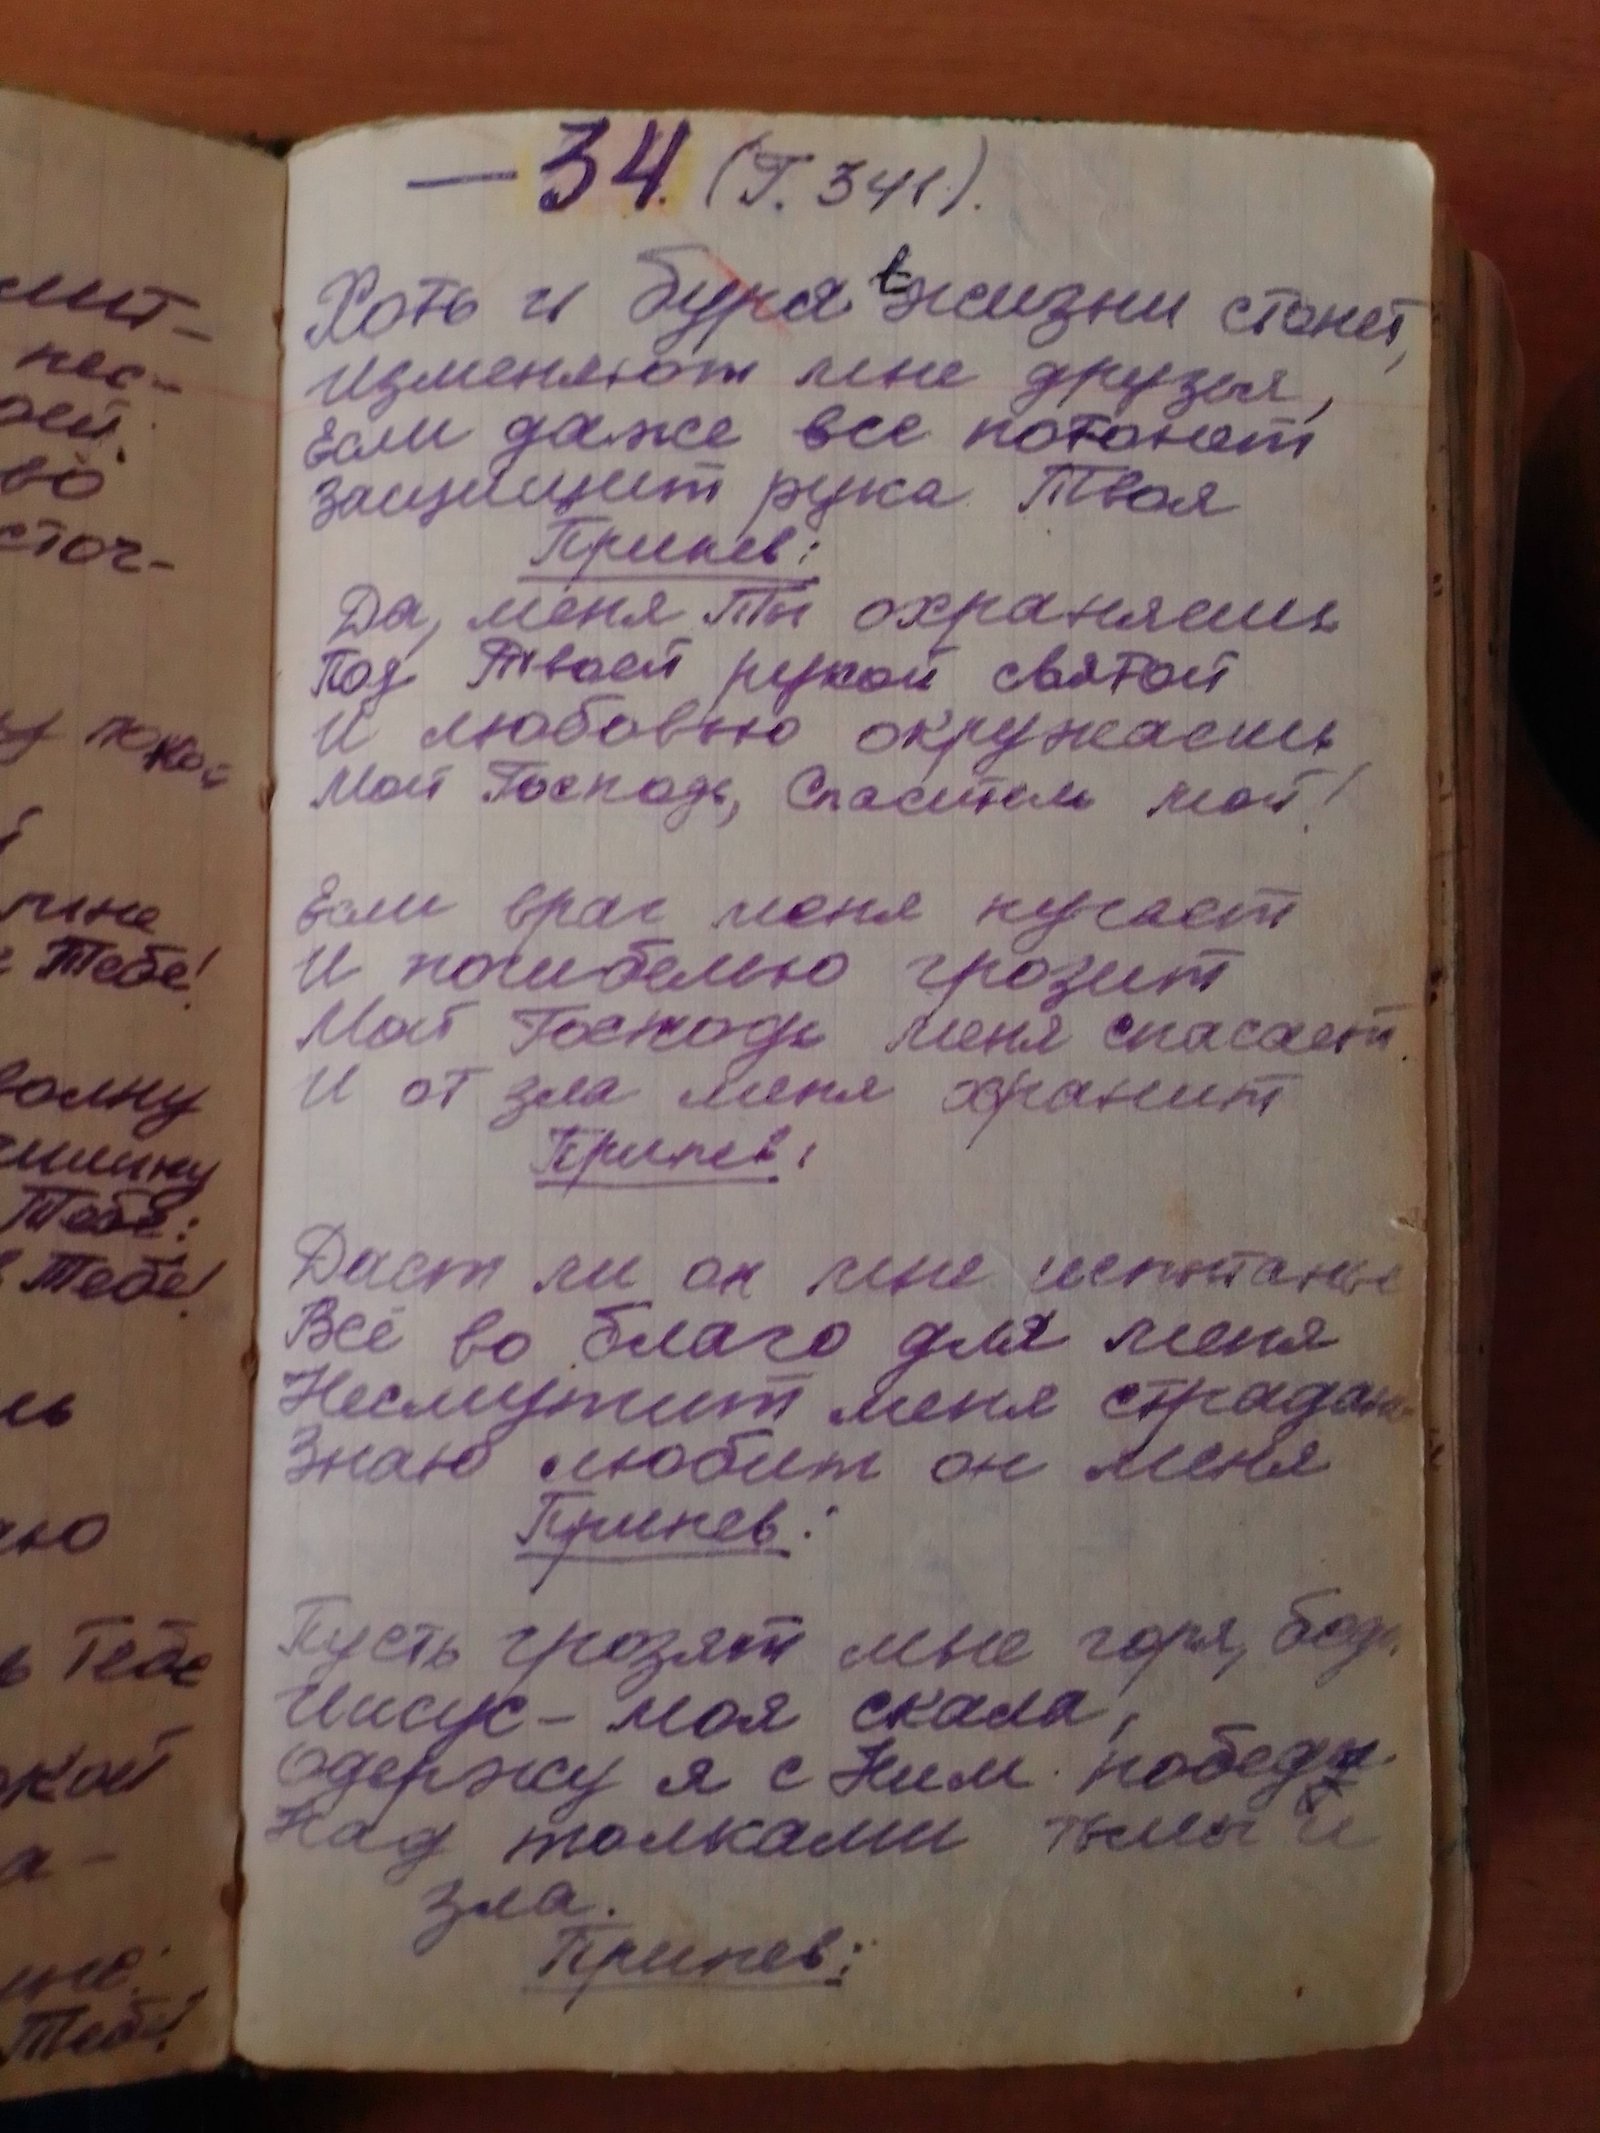 лит-
пес-
оей.
во
сточ-
—34. (Г. 341).
Хоть и буря в жизни стонет,
Изменяют мне друзья,
Если даже все потонет
Защищит рука Твоя
Припев:
Да, меня Ты охраняешь
Под Твоей рукой святой
И любовью окружаешь
Мой Господь, Спаситель мой!
Если враг меня пугает
И погибелью грозит
Мой Господь меня спасает
И от зла меня хранит
Припев:
Даст ли он мне испытанье
Всё во благо для меня
Несмутит меня страдань
Знаю любит он меня
Припев:
Пусть грозят мне горя, беды
Иисус – моя скала,
Одержу я с Ним победы
Над полками тьмы и
зла.
Припев:
Тебе!
волну
Тебе:
Тебе!
ь Тебе
Тебе!